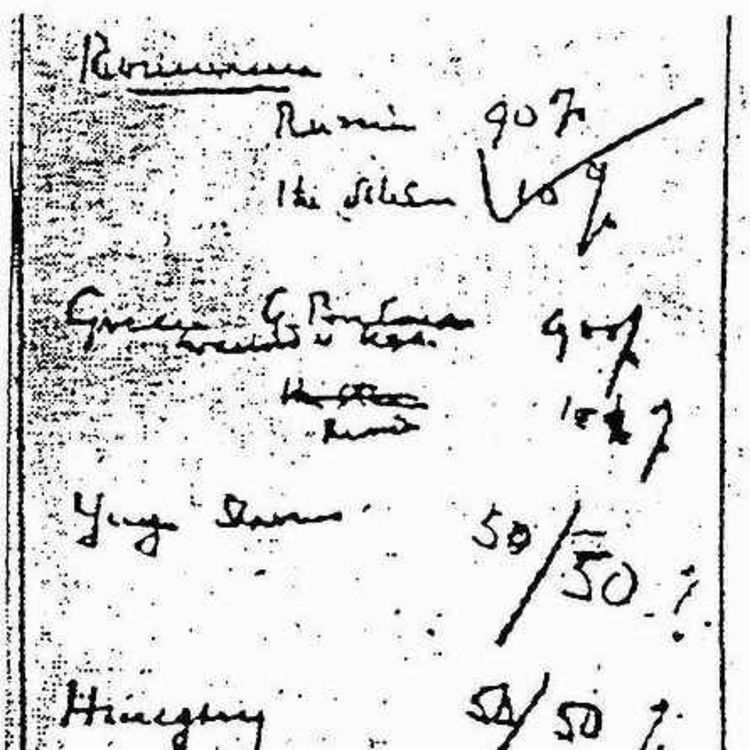 Roumania
Russia 90%
The others 10%
Greece G. Britain 90%
in accord w USA.
Russia 10%
Yugo Slavia 50/50%
Hungary 50/50%